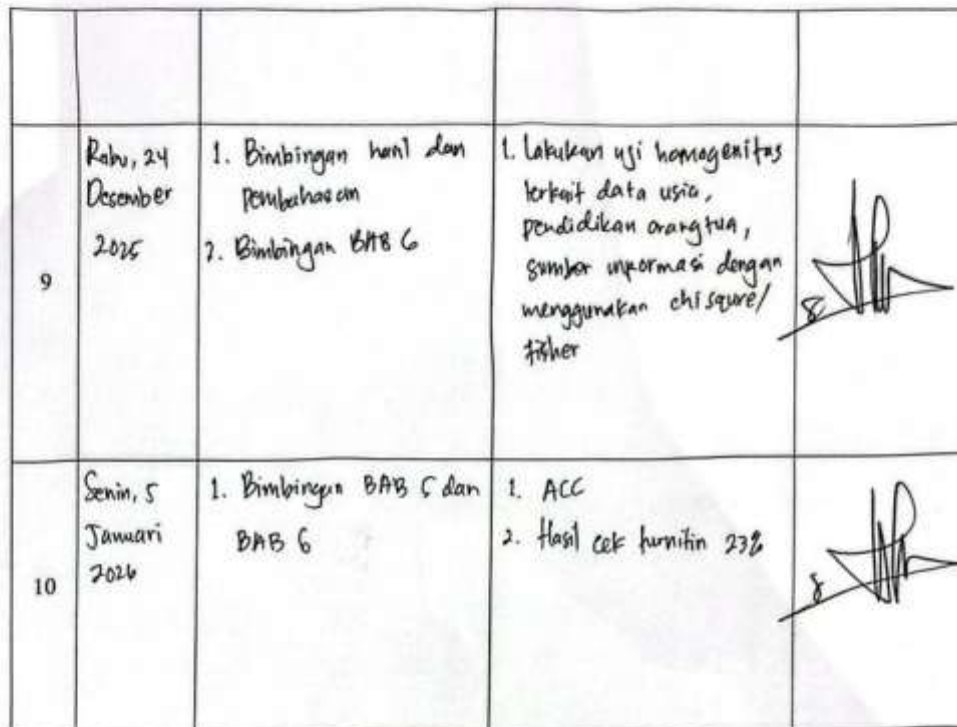 9
Rabu, 24
Desember
2025
1. Bimbingan hasil dan
pembahasan
2. Bimbingan BAB 6
1. Lakukan uji homogenitas
terkait data usia,
pendidikan orangtua,
sumber informasi dengan
menggunakan chi squre/
fisher
10
Senin, 5
Januari
2026
1. Bimbingan BAB 5 dan
BAB 6
1. ACC
2. Hasil cek turnitin 23%